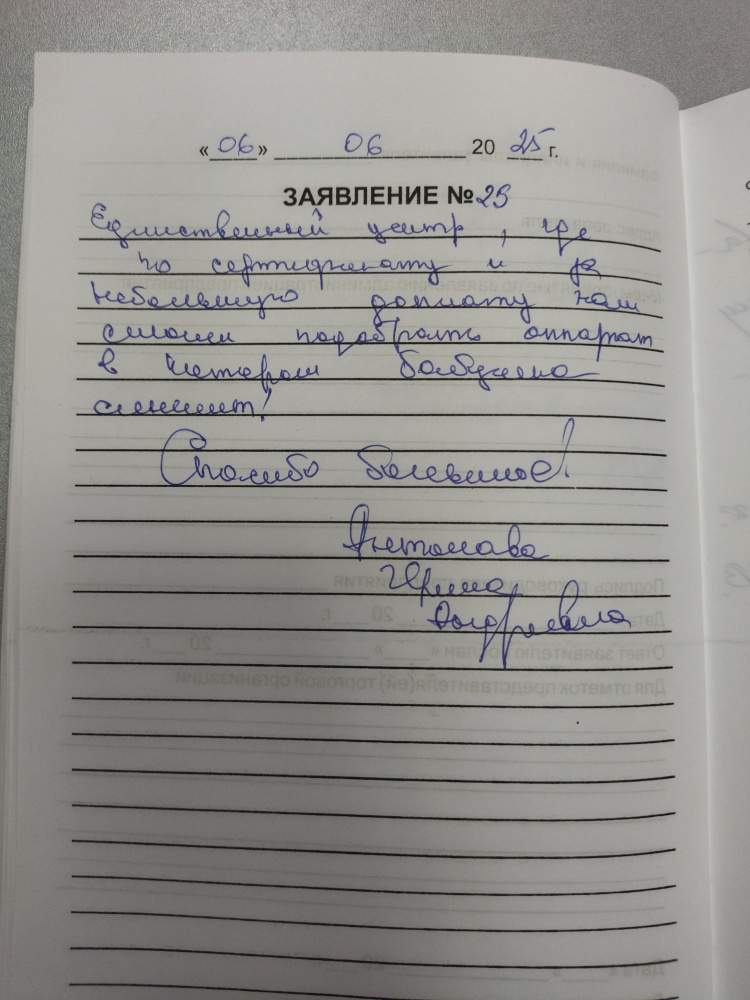 «06» 06 2025 г.
ЗАЯВЛЕНИЕ №29
Единственный центр, где
по сертификату и за
небольшую доплату нам
смогли подобрать аппарат
в котором бабушка
слышит!
Спасибо большое!
Антонова
Ирина
Андреевна